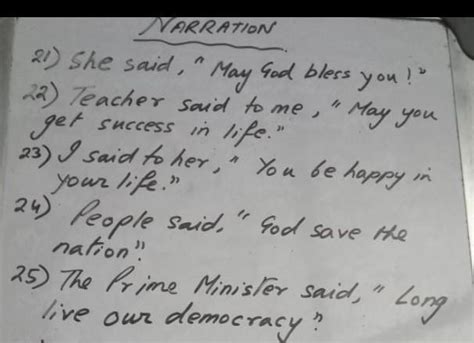 NARRATION
21) She said, " May God bless you!"
22) Teacher said to me, " May you
get success in life."
23) I said to her, " You be happy in
your life."
24) People said, " God save the
nation".
25) The Prime Minister said, " Long
live our democracy".